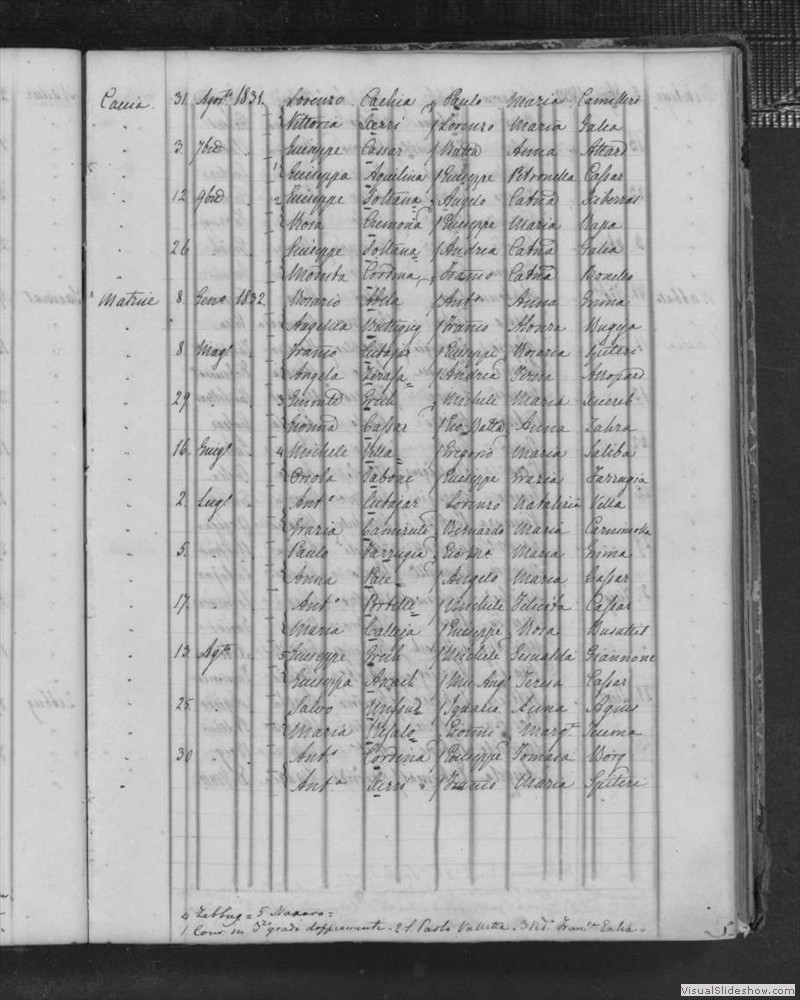 Caccia 31 Agos.to 1831. Lorenzo Cachia Paulo Maria Camilleri
Vittoria Xerri Lorenzo Maria Galea
3. 7bre Giuseppe Cassar Batta Anna Attard
1 Giuseppa Aquilina Giuseppe Petronella Cassar
12 9bre 2 Giuseppe Soltana Angelo Catna
Rosa Cremona Giuseppe Maria
26 Giuseppe Soltana Andrea Catna Galea
Cordina Franco Catna
Matrice 8. Geno 1832. Rosario Abela Anto Anna Grima
Angelica Buttigieg Franco Bugeja
8. Mago Franco Cutajar Giuseppe Rosaria Spiteri
Angela Zerafa Andrea Teresa
29. 3 Grech Michele Maria Xuereb
Cassar Gio Batta Anna Zahra
16. Giugo 4 Michele Vella Gregorio Maria Saliba
Orsola Tabone Giuseppe Grazia Farrugia
2. Luglo Anto Cutajar Lorenzo Natalizia Vella
Grazia Camenzuli Bernardo Maria
5. Paulo Farrugia Maria Grima
Anna Pace Angelo Maria Cassar
17. Anto Portelli Michele Felicita Cassar
Maria Calleja Giuseppe Rosa Busuttil
13. Agto 5 Giuseppe Grech Michele Gesualda Giannone
Giuseppa Axiach Mic. Anglo Teresa Cassar
25. Salvo Ignazio Anna Agius
Maria Margta Teuma
30 Anto Cordina Giuseppe Tomasa Borg
Anta Xerri Franco Maria Spiteri
4 Zebbug = 5 Naxaro =
1 Cons. in 3zo grado doppiamente - 2 S. Paolo Valletta - 3 Ved.
VisualSlideshow.com